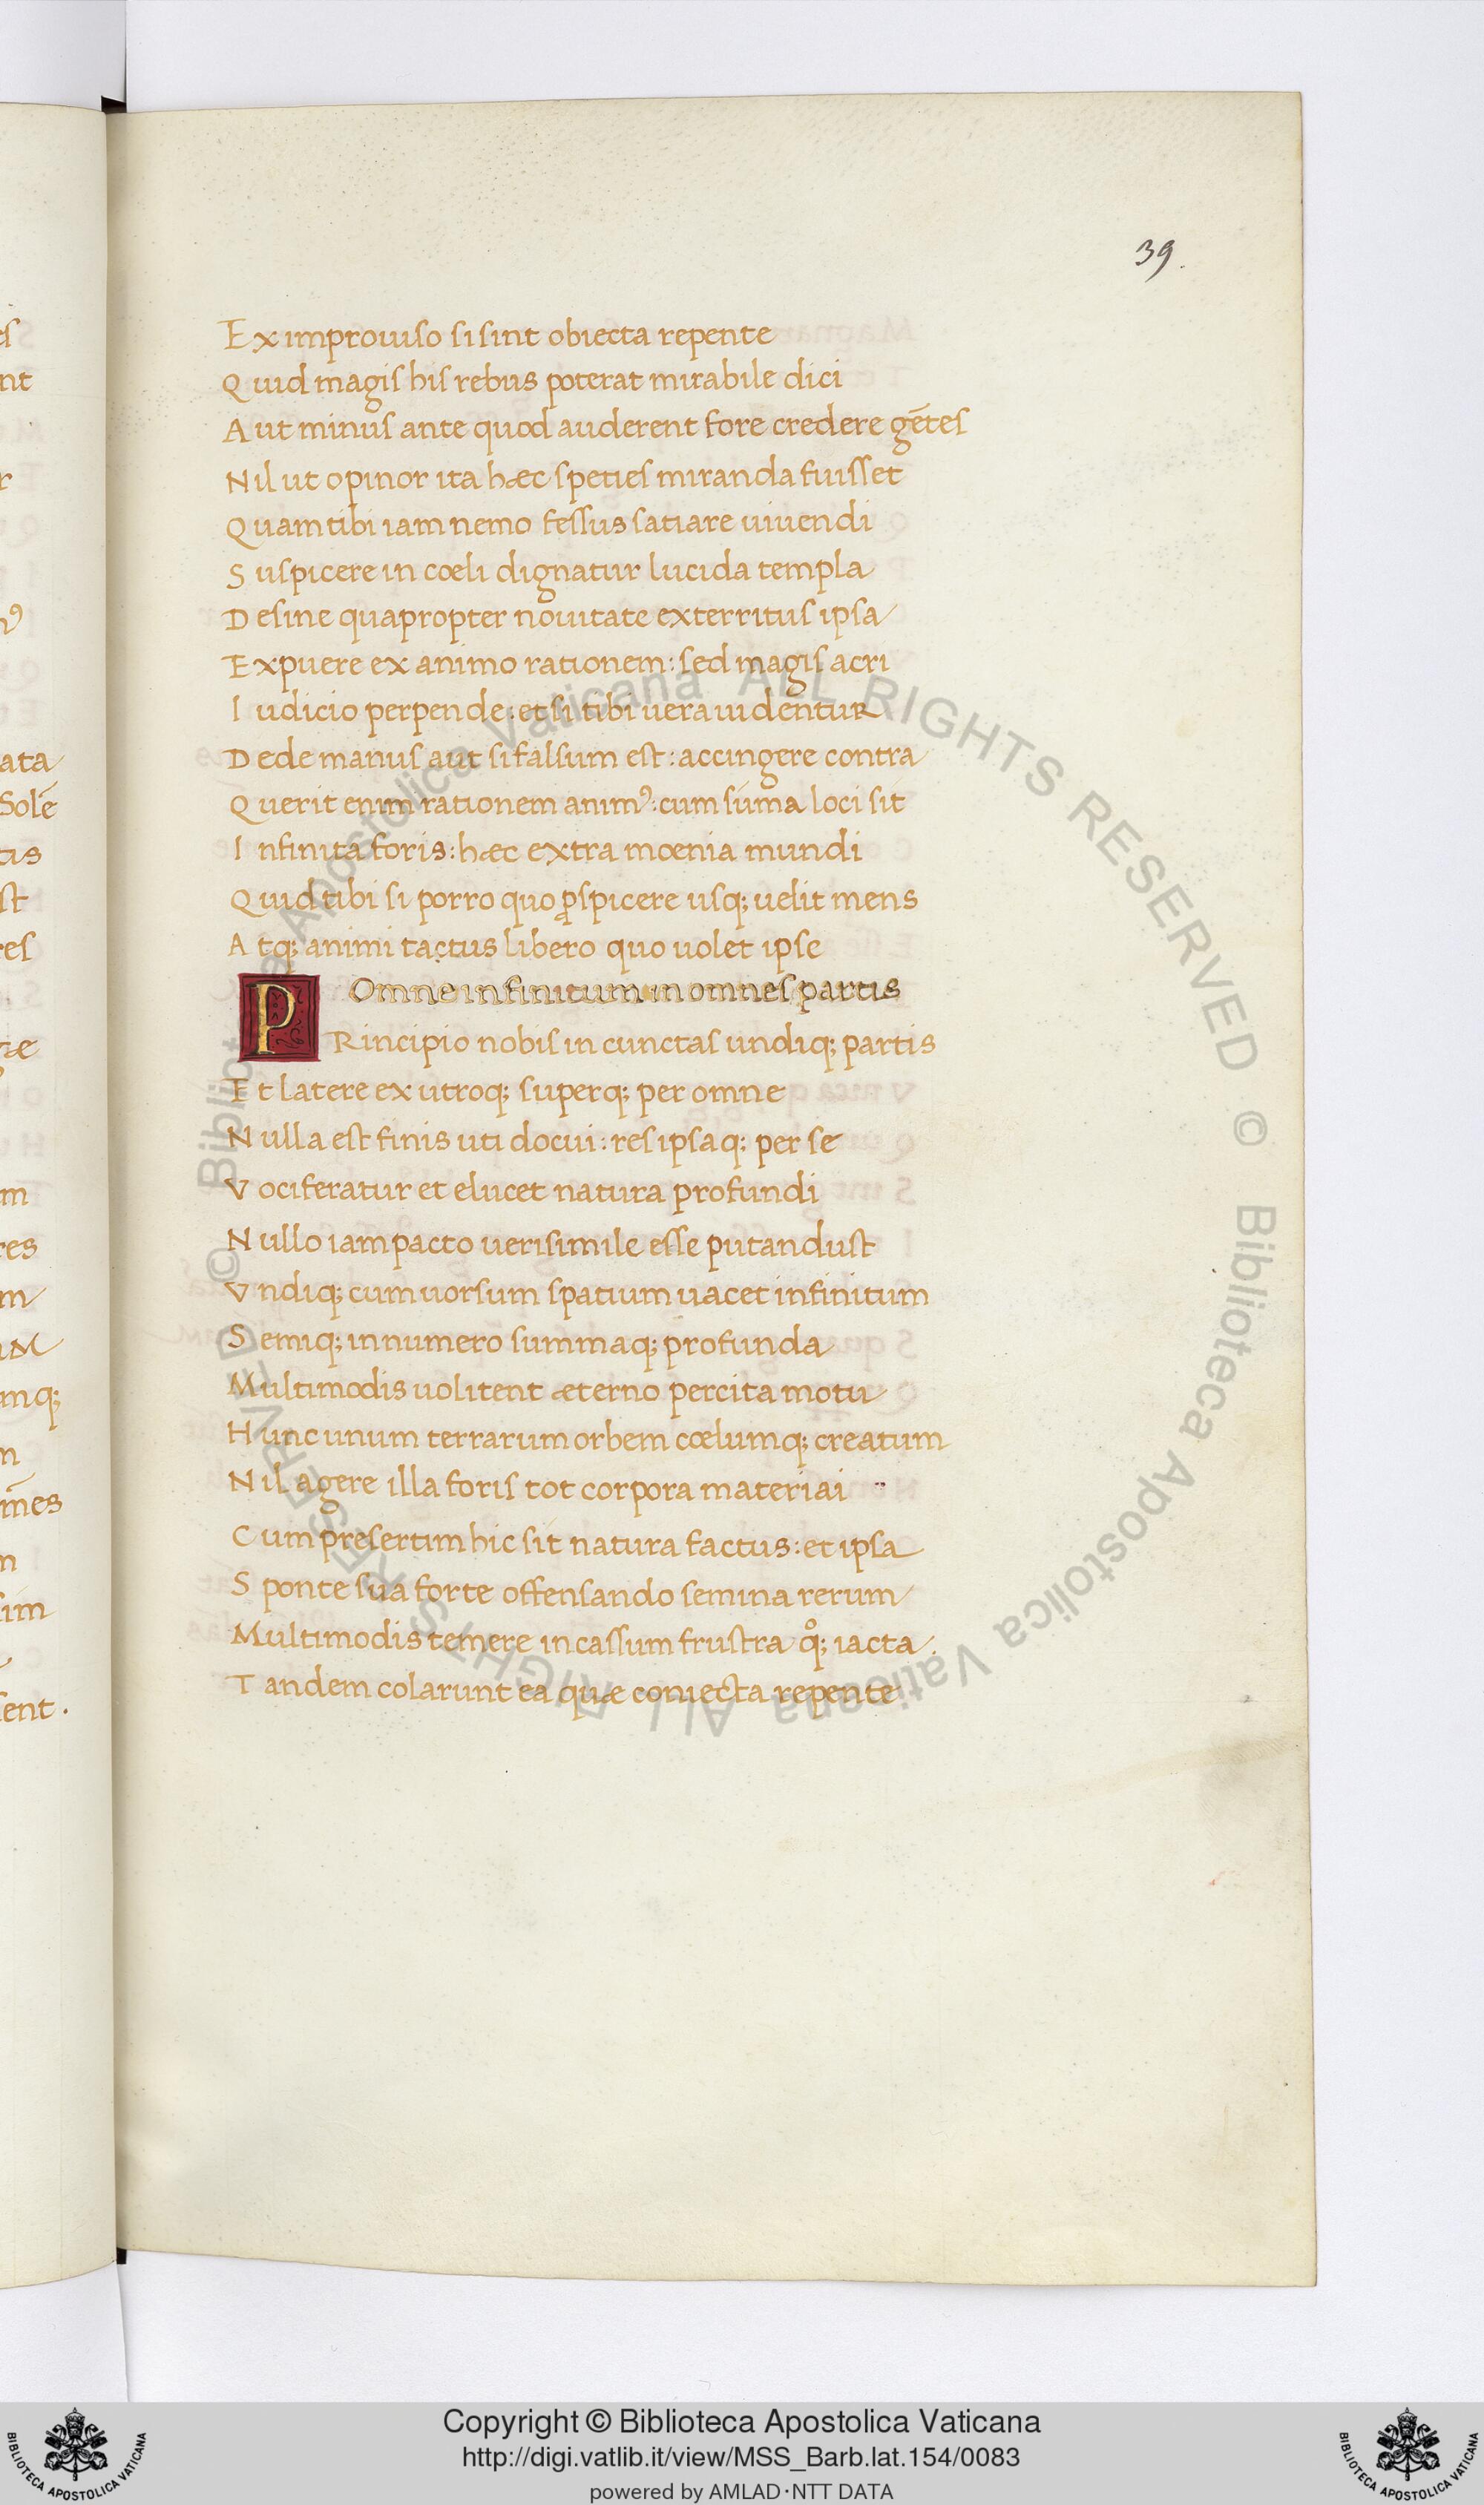 39.
Ex improuiso si sint obiecta repente
Quid magis his rebus poterat mirabile dici
Aut minus ante quod auderent fore credere gētes
Nil ut opinor ita hæc speties miranda fuisset
Quam tibi iam nemo fessus satiare uiuendi
Suspicere in cœli dignatur lucida templa
Desine quapropter nouitate exterritus ipsa
Expuere ex animo rationem: sed magis acri
Iudicio perpende: et si tibi uera uidentur
Dede manus aut si falsum est: accingere contra
Querit enim rationem animꝰ: cum sūma loci sit
Infinita foris: hæc extra mœnia mundi
Quid tibi si porro quo ꝓspicere usq; uelit mens
Atq; animi tactus libero quo uolet ipse
Omne infinitum in omnes partis
PRincipio nobis in cunctas undiq; partis
Et latere ex utroq; superq; per omne
Nulla est finis uti docui: res ipsaq; per se
Vociferatur et elucet natura profundi
Nullo iam pacto uerisimile esse putandust
Vndiq; cum uorsum spatium uacet infinitum
Semiq; innumero summaq; profunda
Multimodis uolitent æterno percita motu
Hunc unum terrarum orbem cœlumq; creatum
Nil agere illa foris tot corpora materiai
Cum presertim hic sit natura factus: et ipsa
Sponte sua forte offensando semina rerum
Multimodis temere incassum frustra qͦ; iacta.
Tandem colarunt ea quæ coniecta repente
© Biblioteca Apostolica Vaticana ALL RIGHTS RESERVED © Biblioteca Apostolica Vaticana ALL RIGHTS RESERVED
Copyright © Biblioteca Apostolica Vaticana
http://digi.vatlib.it/view/MSS_Barb.lat.154/0083
powered by AMLAD·NTT DATA
BIBLIOTECA APOSTOLICA VATICANA
BIBLIOTECA APOSTOLICA VATICANA